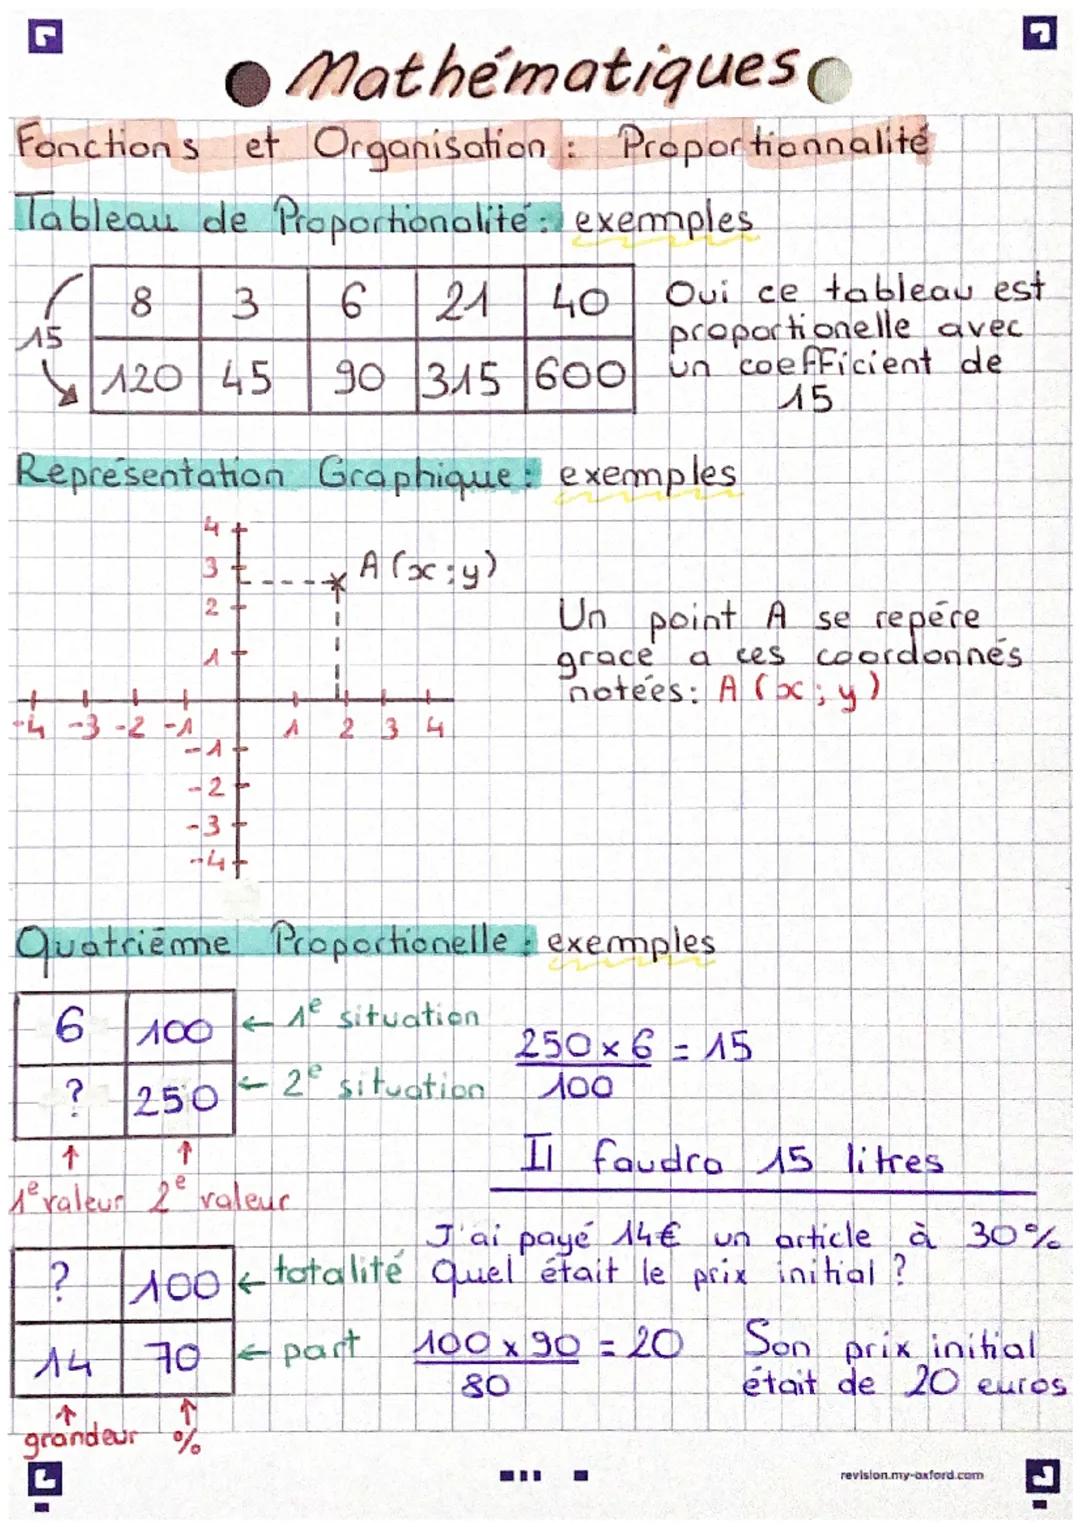 Mathématiques
Fonctions et Organisation : Proportionnalité
Tableau de Proportionalité : exemples
15
8 3 6 21 40
120 45 90 315 600
Oui ce tableau est
proportionelle avec
un coefficient de
15
Représentation Graphique : exemples
4
3
2
1
A (x ; y)
-4 -3 -2 -1 1 2 3 4
-1
-2
-3
-4
Un point A se repére
grace a ces coordonnés
notées : A (x ; y)
Quatriéme Proportionelle : exemples
6 100 ← 1e situation
? 250 ← 2e situation
↑ ↑
1e valeur 2e valeur
250 × 6 = 15
100
Il faudra 15 litres
J'ai payé 14€ un article à 30%
Quel était le prix initial ?
? 100 ← totalité
14 70 ← part
↑ ↑
grandeur %
100 x 90 = 20
80
Son prix initial
était de 20 euros
revision.my-oxford.com